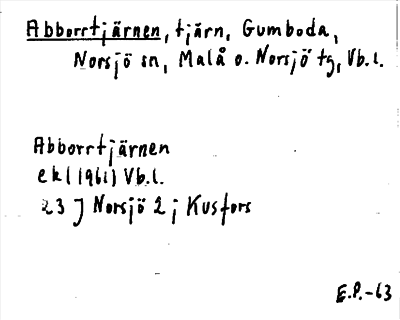 Abborrtjärnen, tjärn, Gumboda,
Norsjö sn, Malå o. Norsjö tg, Vb.l.
Abborrtjärnen
ekl (1961) Vb.l.
23 J Norsjö 2 j Kusfors
E.P.-63